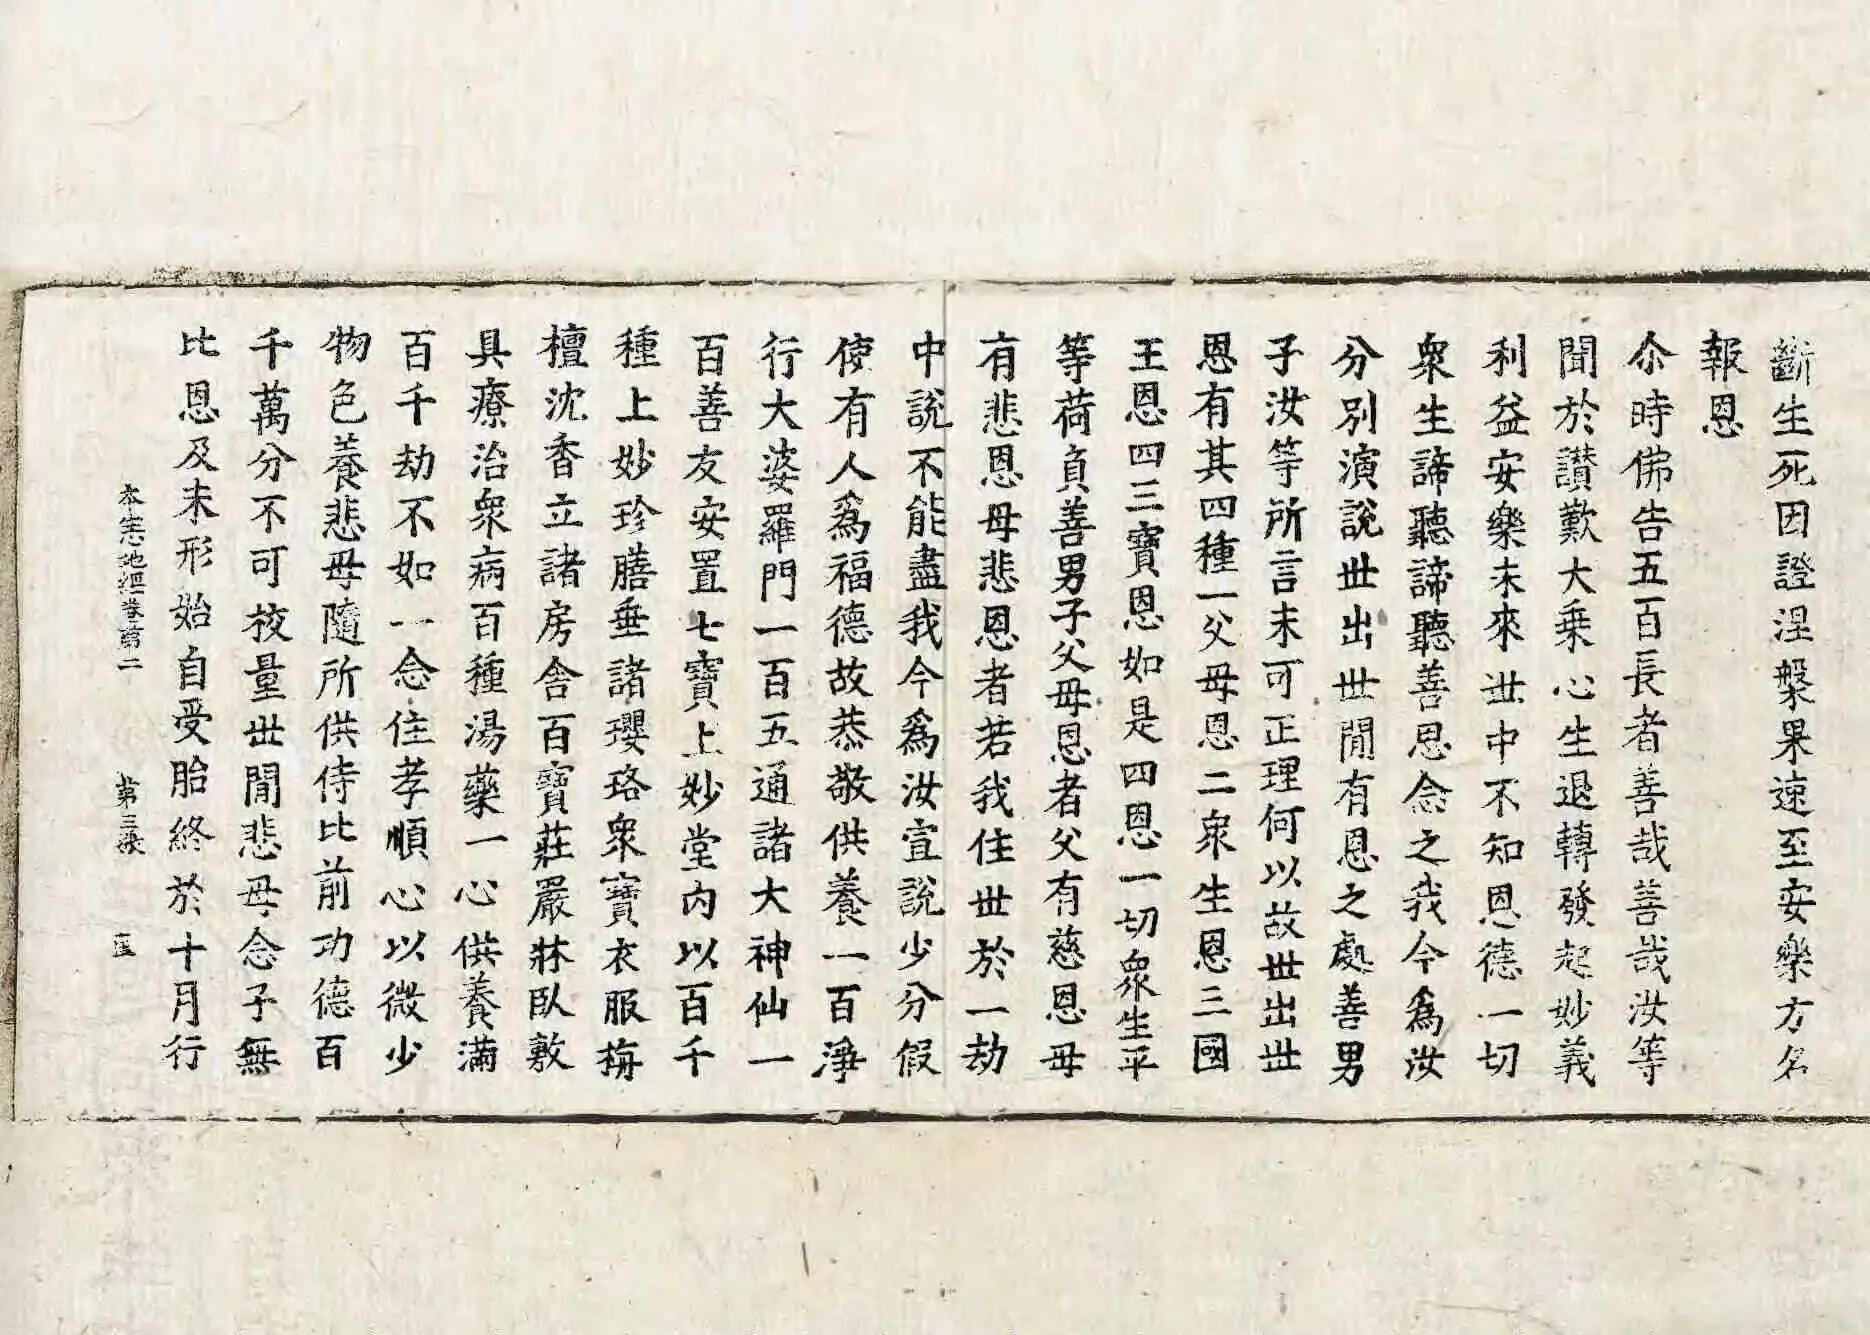 斷生死因證涅槃果速至安樂方名
報恩
尒時佛告五百長者善哉善哉汝等
聞於讃歎大乗心生退轉發起妙義
利益安樂未來丗中不知恩德一切
衆生諦聽諦聽善思念之我今爲汝
分別演說丗出丗閒有恩之處善男
子汝等所言未可正理何以故丗出丗
恩有其四種一父母恩二衆生恩三國
王恩四三寶恩如是四恩一切衆生平
等荷負善男子父母恩者父有慈恩母
有悲恩母悲恩者若我住丗於一劫
中說不能盡我今爲汝宣說少分假
使有人爲福德故恭敬供養一百淨
行大婆羅門一百五通諸大神仙一
百善友安置七寶上妙堂內以百千
種上妙珍膳垂諸瓔珞衆寶衣服栴
檀沈香立諸房舍百寶莊嚴牀臥敷
具療治衆病百種湯藥一心供養滿
百千劫不如一念住孝順心以微少
物色養悲母隨所供侍比前功德百
千萬分不可校量丗閒悲母念子無
比恩及未形始自受胎終於十月行
本志地經卷苐二 苐三張 匡